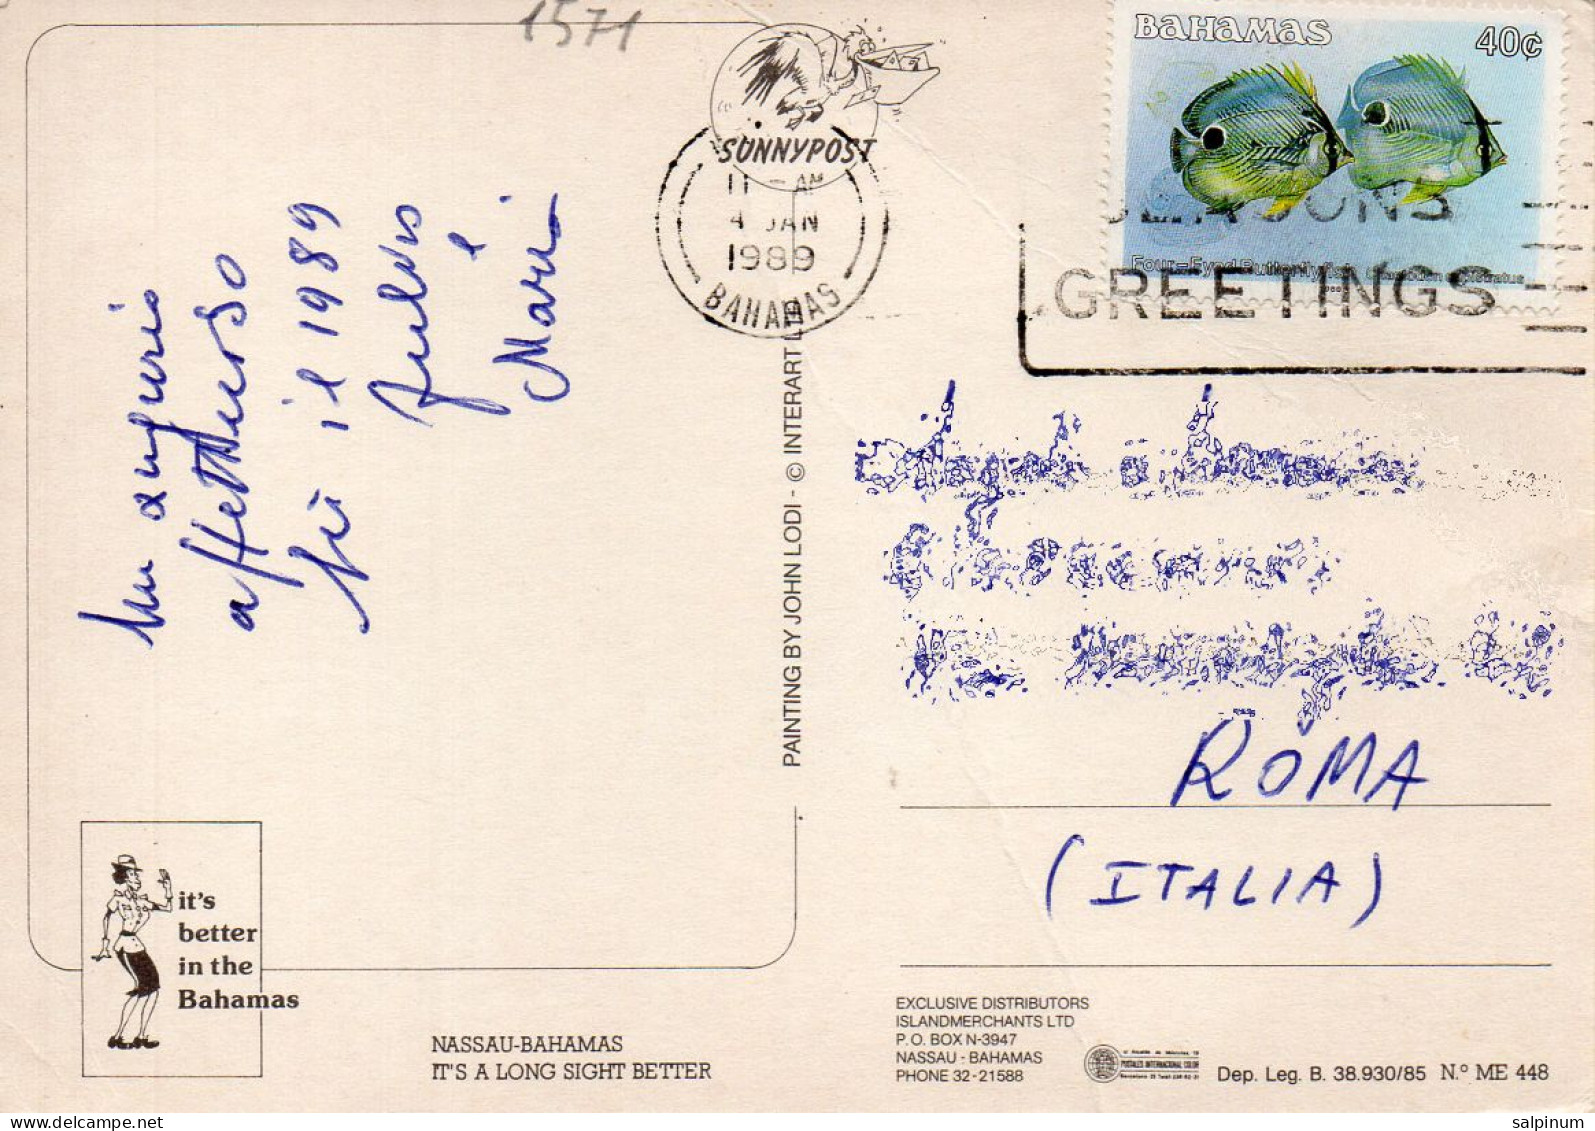 1571
SUNNYPOST
11 - AM
4 JAN
1989
BAHAMAS
BAHAMAS
40¢
Four-Eyed Butterflyfish
GREETINGS
un augurio
affettuoso
il 1989
Fulvio
e
Mari
PAINTING BY JOHN LODI - © INTERART
ROMA
(ITALIA)
it's
better
in the
Bahamas
NASSAU-BAHAMAS
IT'S A LONG SIGHT BETTER
EXCLUSIVE DISTRIBUTORS
ISLANDMERCHANTS LTD
P.O. BOX N-3947
NASSAU - BAHAMAS
PHONE 32-21588
POSTALES INTERNACIONAL COLOR
Dep. Leg. B. 38.930/85 N.º ME 448
salpinum